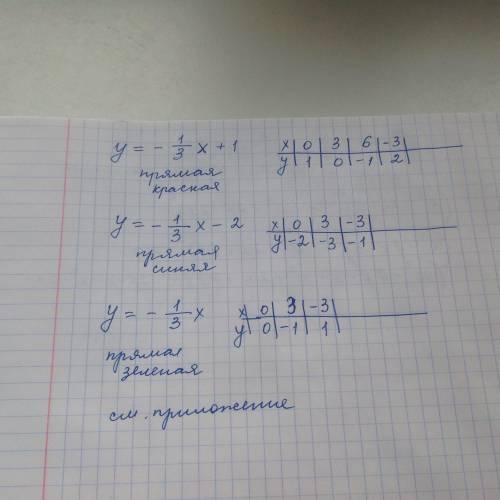 y = - 1/3 x + 1
x | 0 | 3 | 6 | -3
y | 1 | 0 | -1 | 2
прямая
красная
y = - 1/3 x - 2
x | 0 | 3 | -3
y | -2 | -3 | -1
прямая
синяя
y = - 1/3 x
x | 0 | 3 | -3
y | 0 | -1 | 1
прямая
зеленая
см. приложение